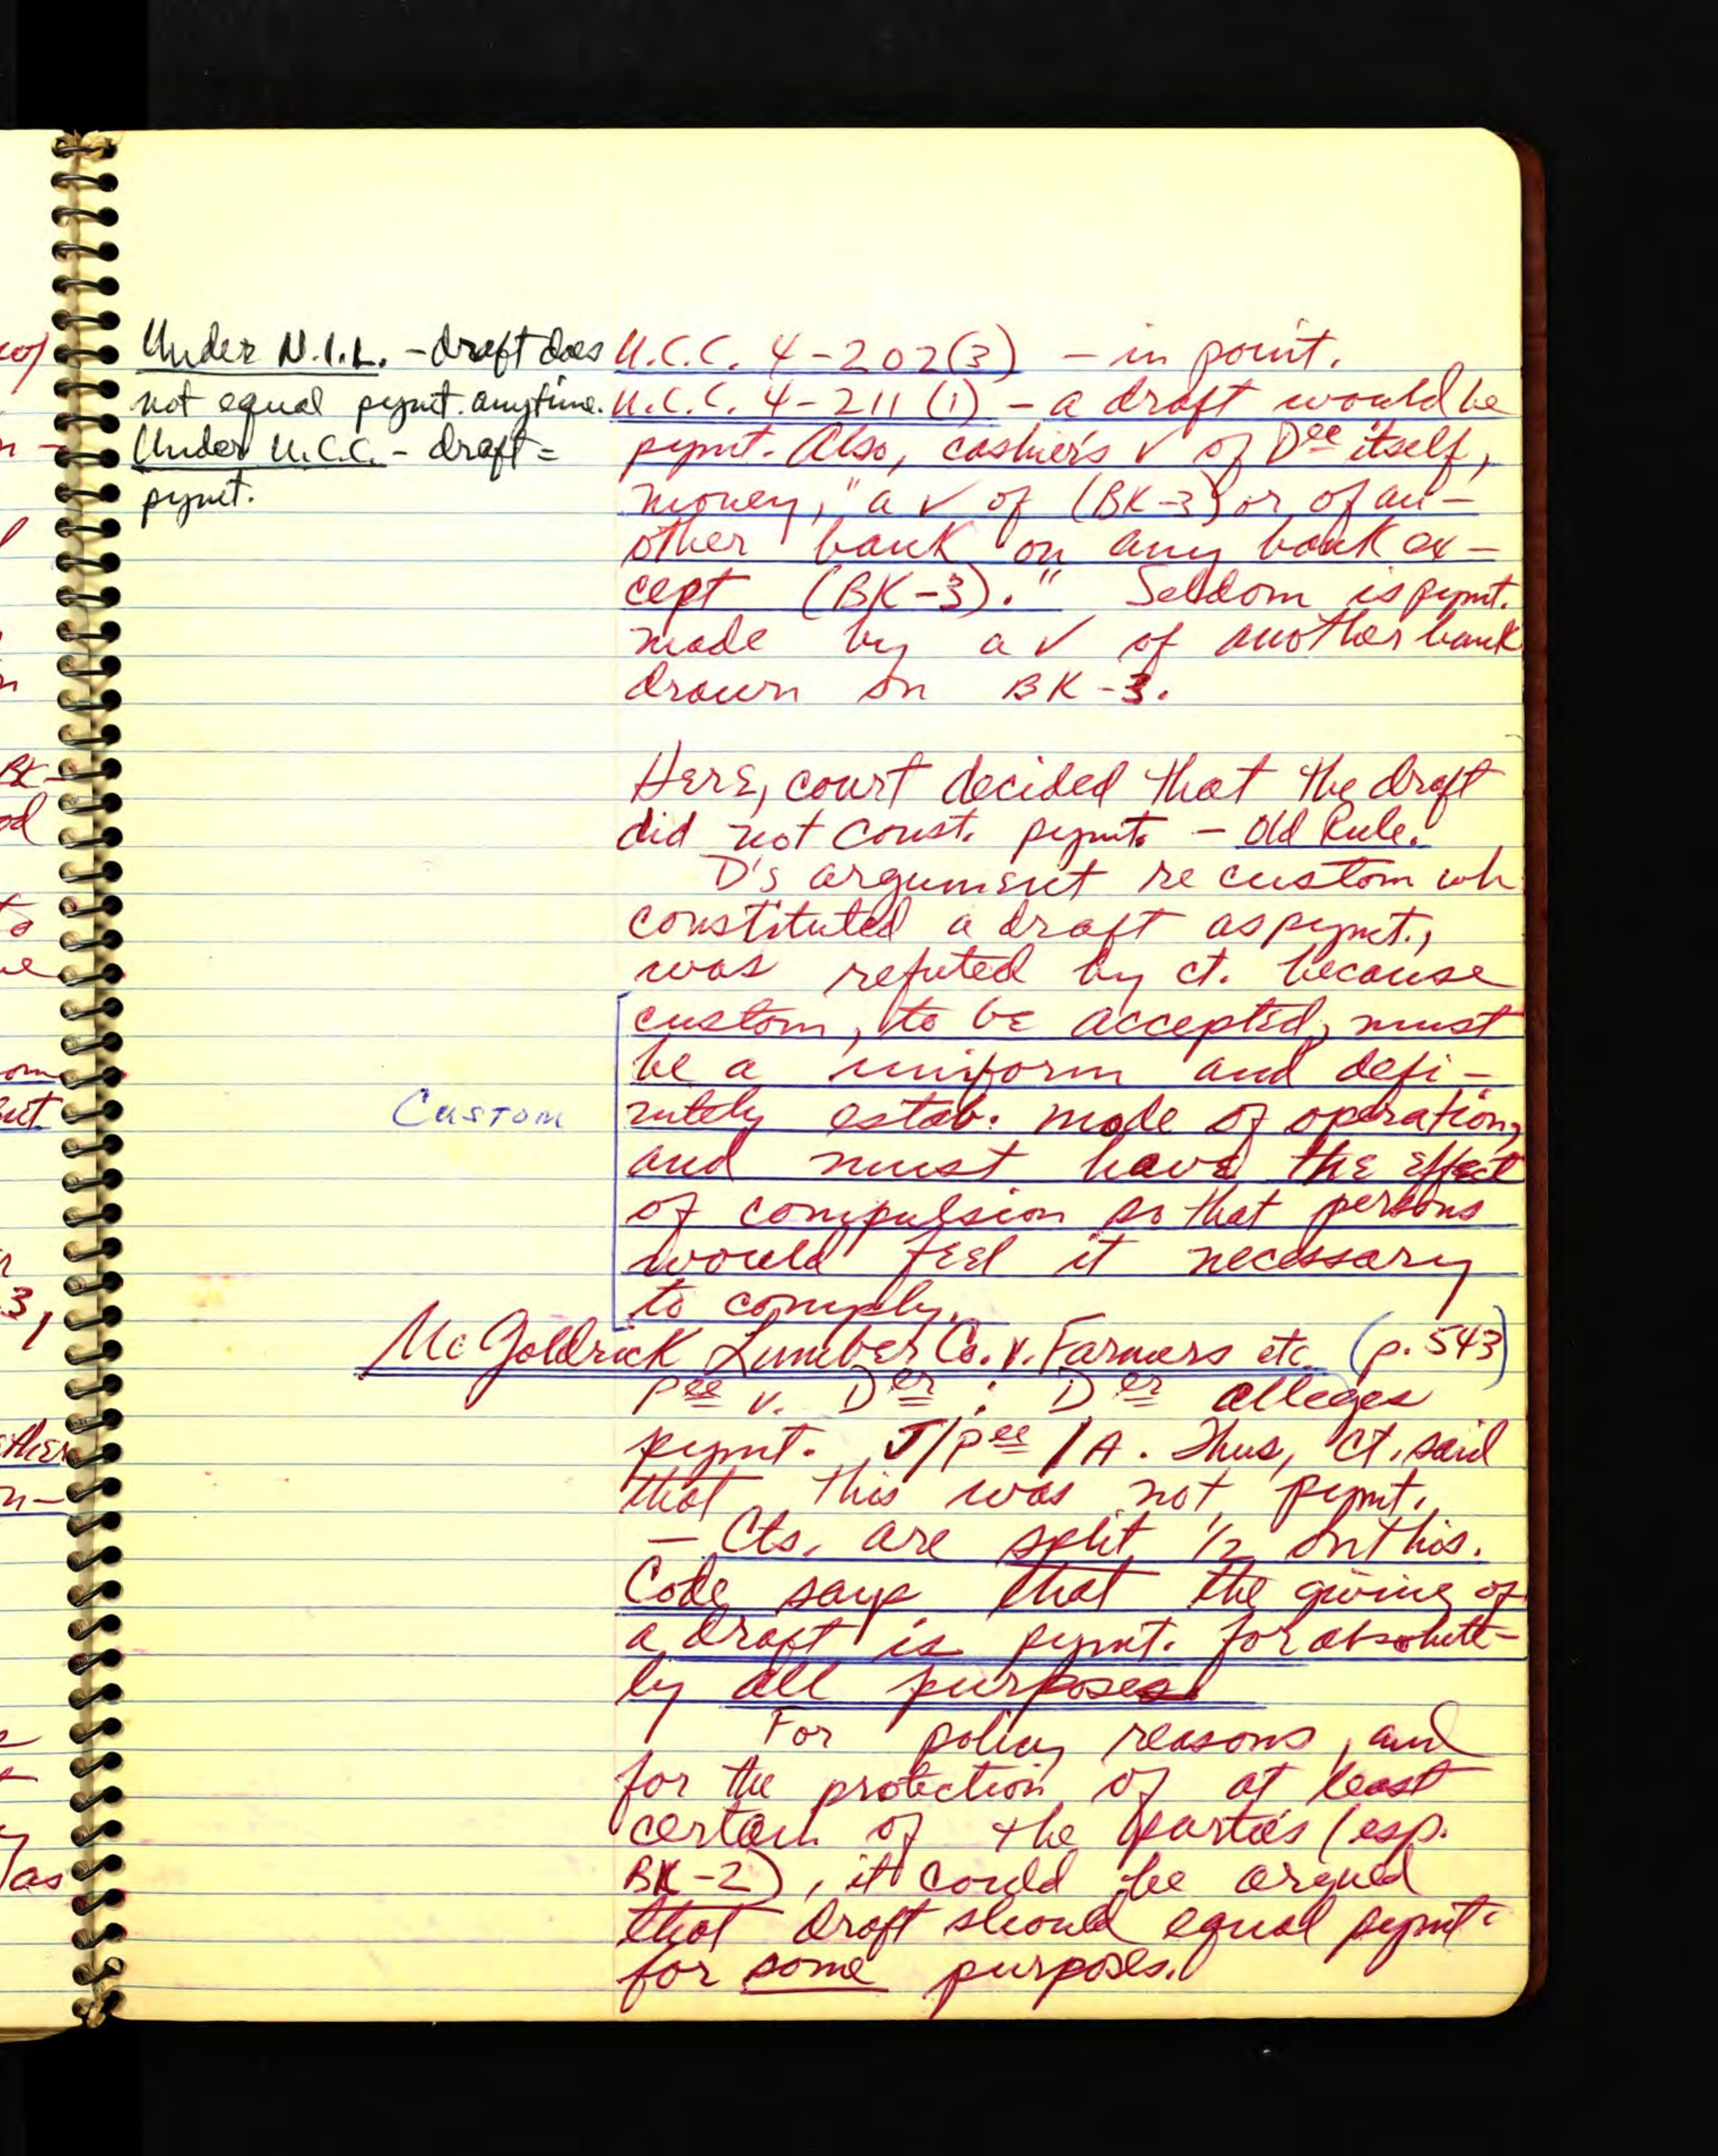 Under N.I.L. - draft does
not equal pymt. anytime.
Under U.C.C. - draft =
pymt.
U.C.C. 4-202(3) - in point.
U.C.C. 4-211(1) - a draft would be
pymt. Also, cashier's ✓ of Dee itself,
money, "a ✓ of (BK-3) or of an-
other bank on any bank ex-
cept (BK-3)." Seldom is pymt.
made by a ✓ of another bank
drawn on BK-3.
Here, court decided that the draft
did not const. pymt. - Old Rule.
D's argument re custom wh
constituted a draft as pymt.,
was refuted by ct. because
custom, to be accepted, must
be a uniform and defi-
nitely estab. mode of operation,
and must have the effect
of compulsion so that persons
would feel it necessary
to comply.
Custom
McGoldrick Lumber Co. v. Farmers etc. (p. 543)
Pee v. Der : Der alleges
pymt. J/Pee/A. Thus, ct. said
that this was not pymt.
- Cts. are split 1/2 on this.
Code says that the giving of
a draft is pymt. for absolute-
ly all purposes
For policy reasons, and
for the protection of at least
certain of the parties (esp.
BK-2), it could be argued
that draft should equal pymt.
for some purposes.